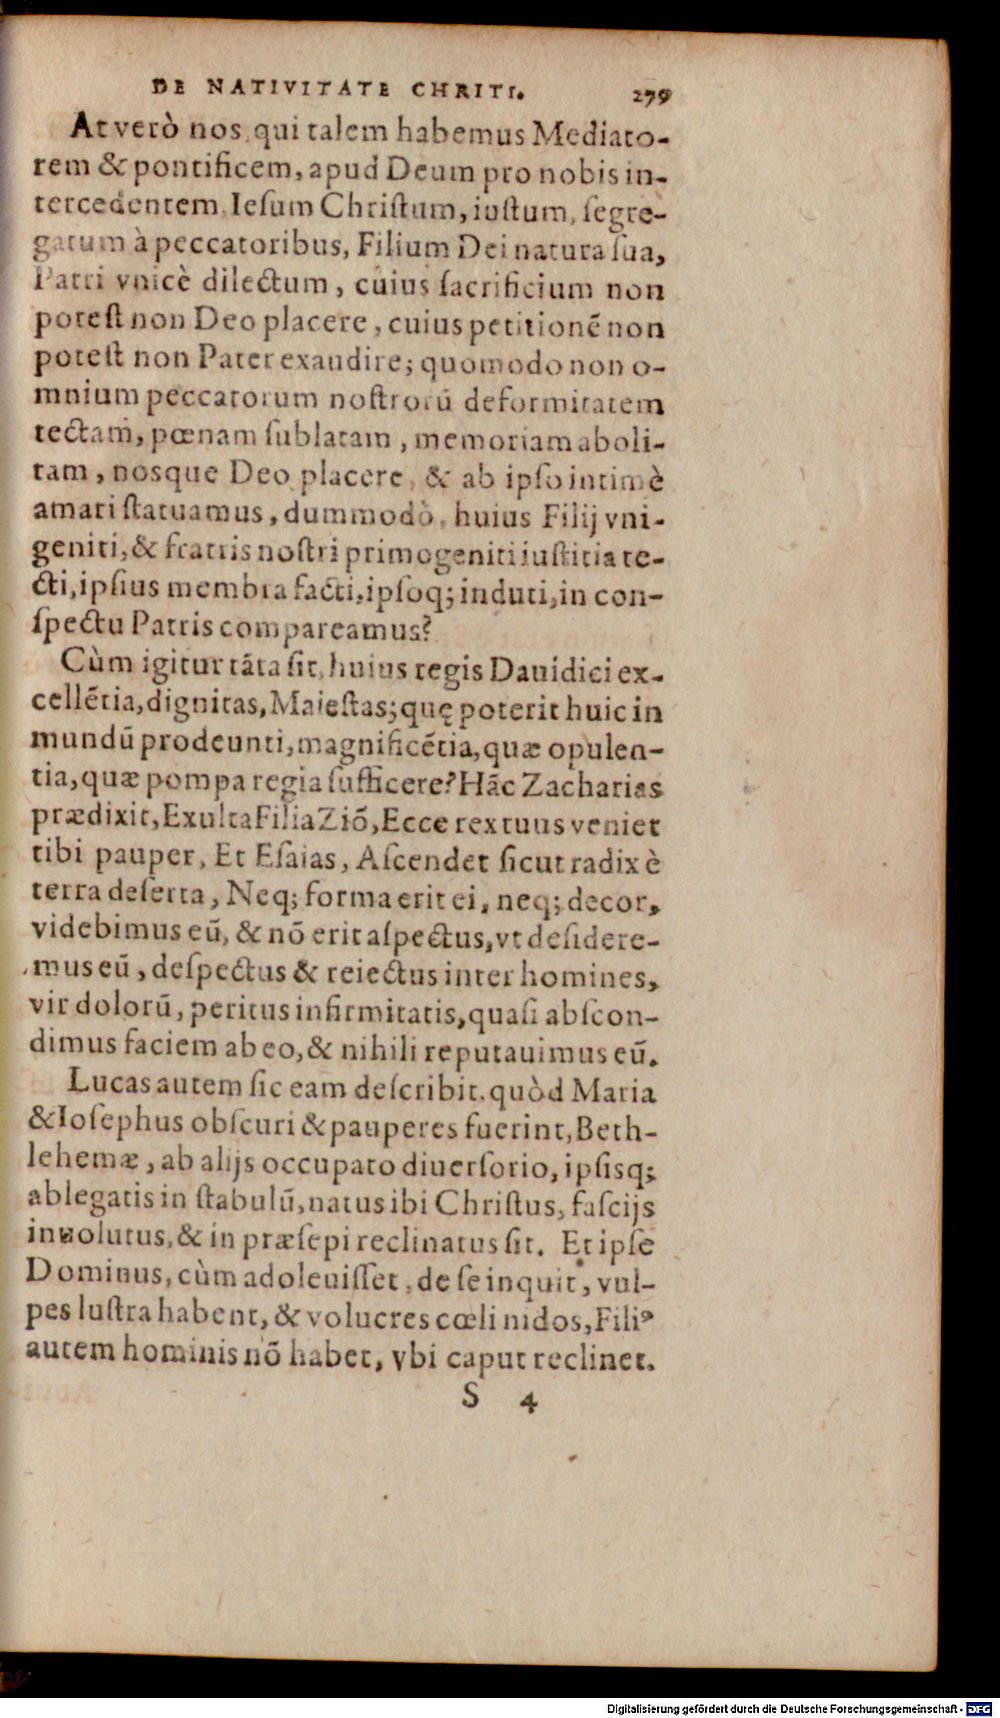 DE NATIVITATE CHRITI. 279
At verò nos, qui talem habemus Mediato-
rem & pontificem, apud Deum pro nobis in-
tercedentem, Ieſum Chriſtum, iuſtum, ſegre-
gatum à peccatoribus, Filium Dei natura ſua,
Patri vnicè dilectum, cuius ſacrificium non
poteſt non Deo placere, cuius petitionẽ non
poteſt non Pater exaudire; quomodo non o-
mnium peccatorum noſtrorũ deformitatem
tectam, pœnam ſublatam, memoriam aboli-
tam, nosque Deo placere, & ab ipſo intimè
amari ſtatuamus, dummodò, huius Filij vni-
geniti, & fratris noſtri primogeniti iuſtitia te-
cti, ipſius membra facti, ipſoq; induti, in con-
ſpectu Patris compareamus?
Cùm igitur tãta ſit, huius regis Dauidici ex-
cellẽtia, dignitas, Maieſtas; quę poterit huic in
mundũ prodeunti, magnificẽtia, quæ opulen-
tia, quæ pompa regia ſufficere? Hãc Zacharias
prædixit, Exulta Filia Ziõ, Ecce rex tuus veniet
tibi pauper, Et Eſaias, Aſcendet ſicut radix è
terra deſerta, Neq; forma erit ei, neq; decor,
videbimus eũ, & nõ erit aſpectus, vt deſidere-
mus eũ, deſpectus & reiectus inter homines,
vir dolorũ, peritus infirmitatis, quaſi abſcon-
dimus faciem ab eo, & nihili reputauimus eũ.
Lucas autem ſic eam deſcribit, quòd Maria
& Ioſephus obſcuri & pauperes fuerint, Beth-
lehemæ, ab alijs occupato diuerſorio, ipſisq;
ablegatis in ſtabulũ, natus ibi Chriſtus, faſcijs
inuolutus, & in præſepi reclinatus ſit. Et ipſe
Dominus, cùm adoleuiſſet, de ſe inquit, vul-
pes luſtra habent, & volucres cœli nidos, Filiꝰ
autem hominis nõ habet, vbi caput reclinet.
S 4
Digitalisierung gefördert durch die Deutsche Forschungsgemeinschaft - DFG